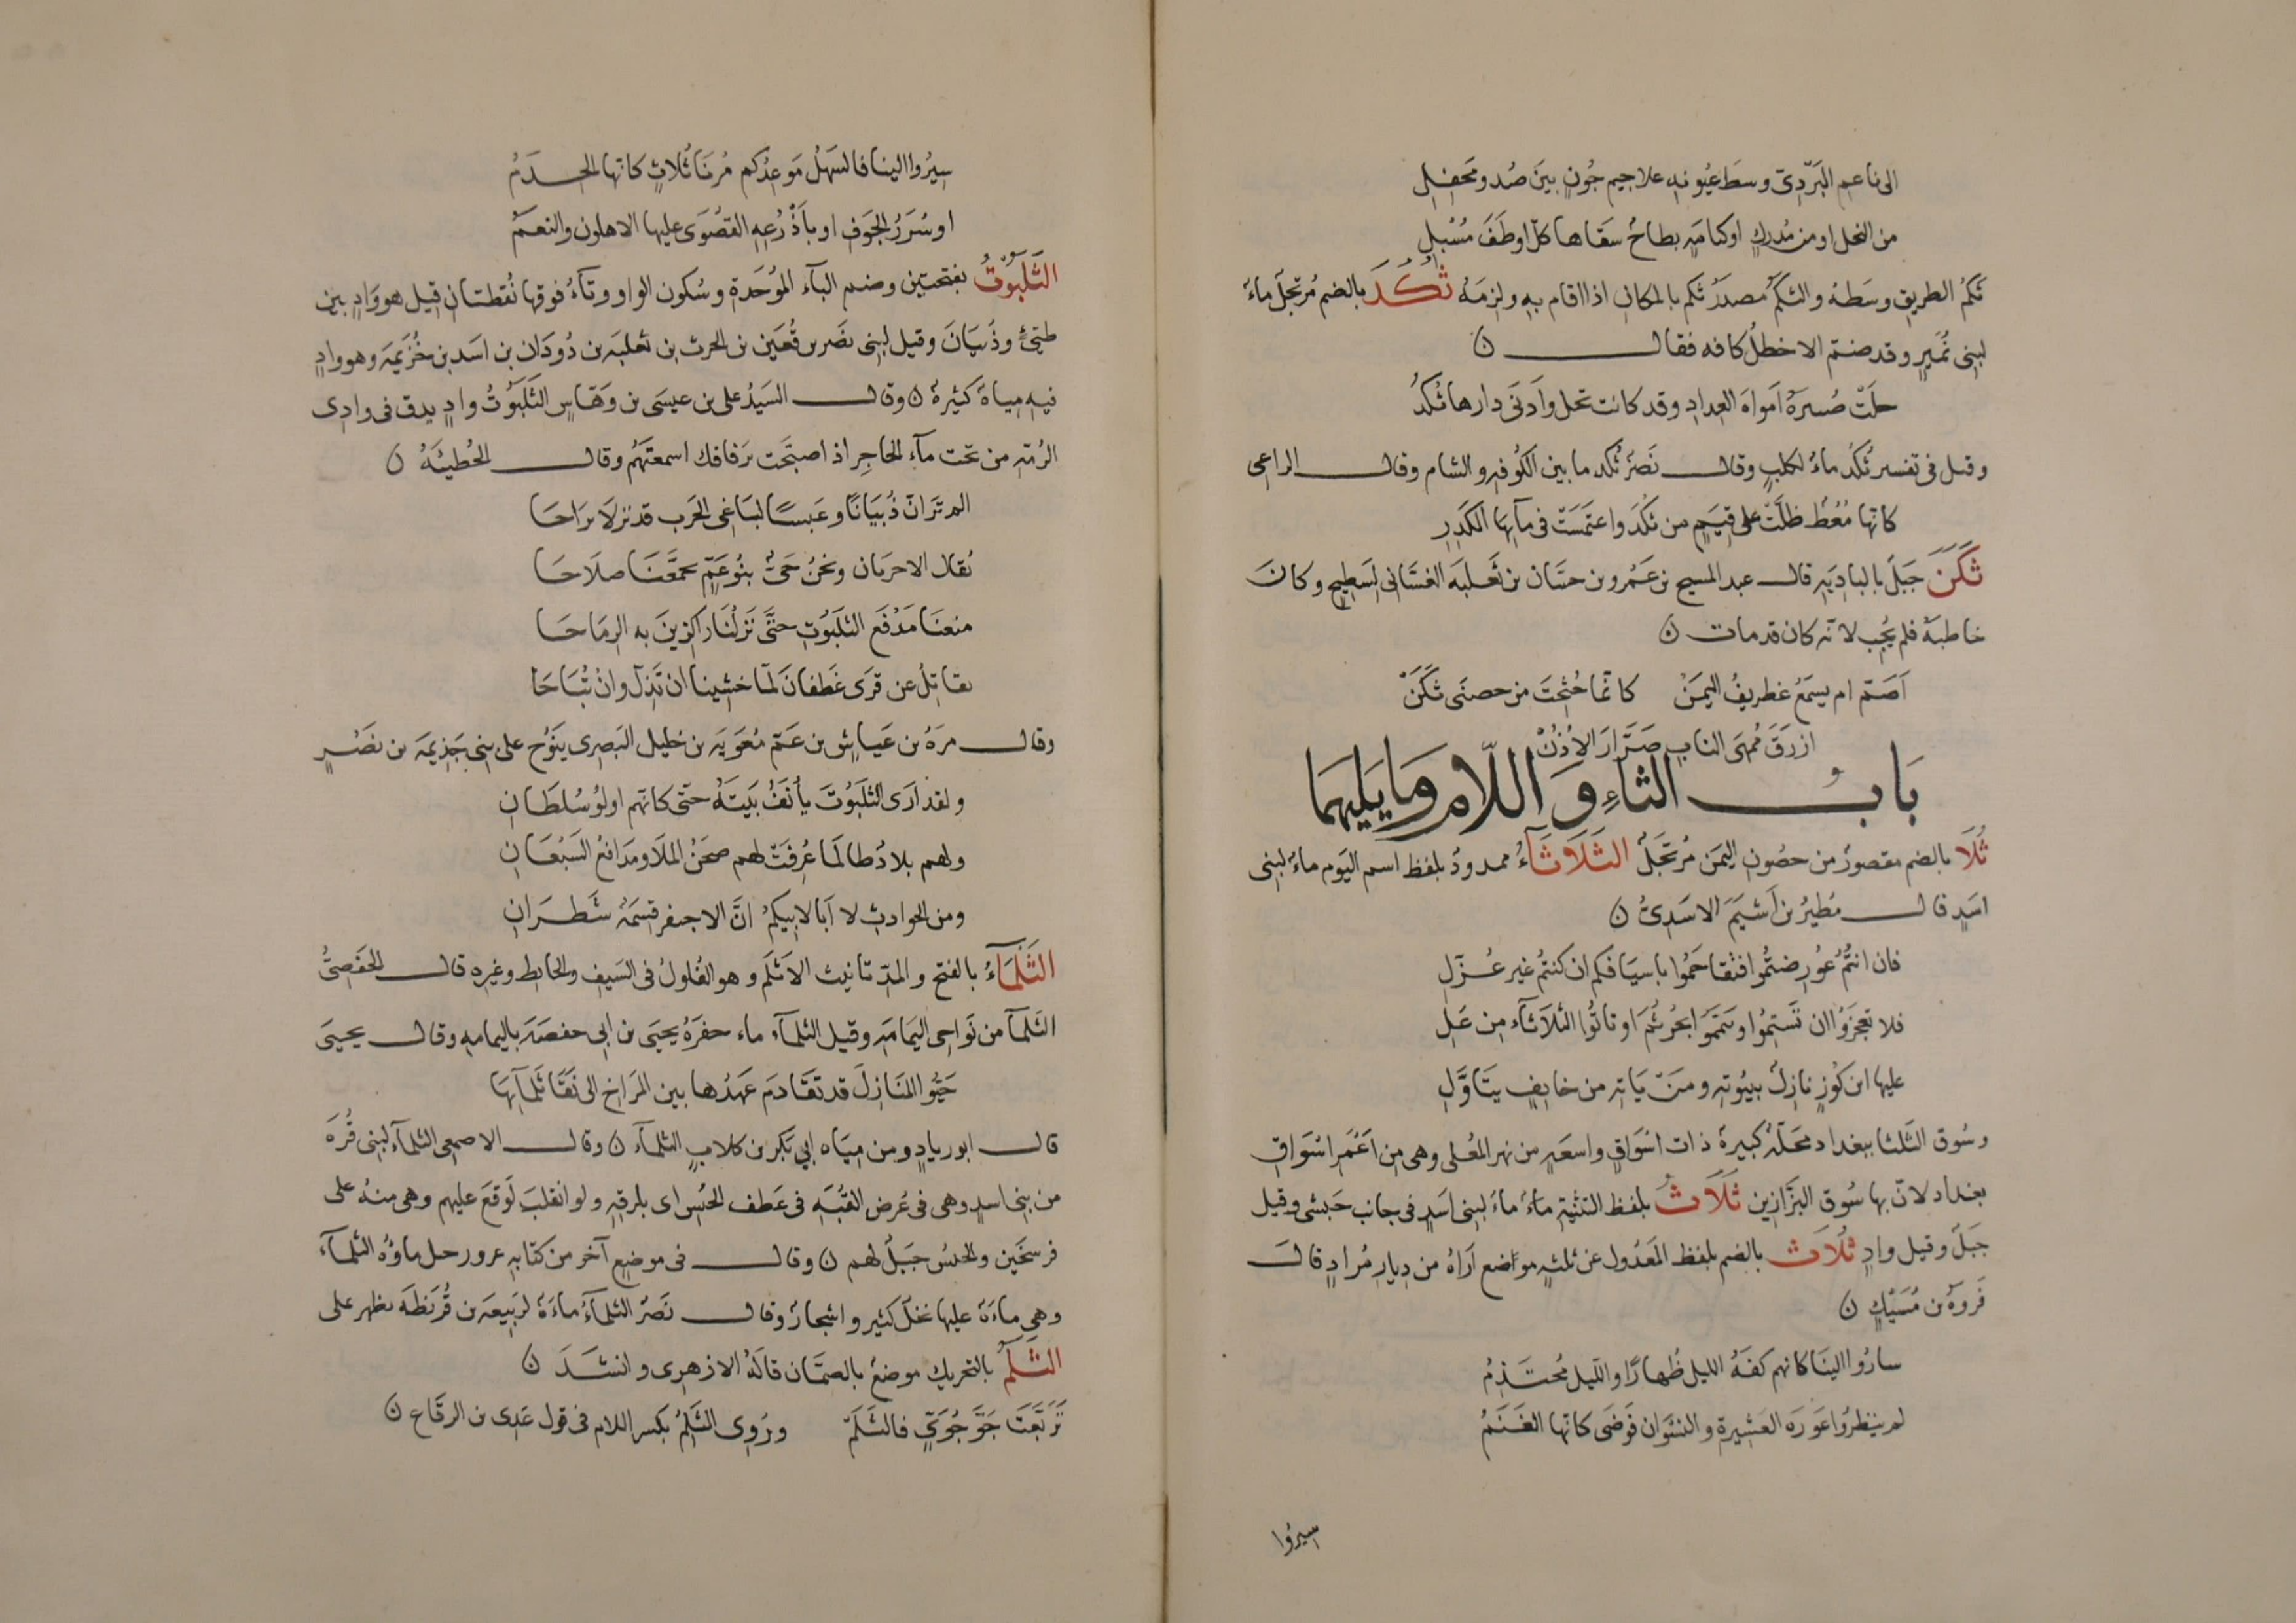 الى ناعم البَرّدِىّ وسطَ عُيُونهِ علاجيم جُونٍ بينَ صُد ومَحفِلِ
من النحل او من مُدركٍ او كنامَةٍ بطاحُ سقاها كلّ اوطَفَ مُسْبِلِ
ثَكمُ الطريقِ وسَطهُ والثكمُ مصدرُ ثكم بالمكان اذا اقام بهِ ولزمَهُ ثُكُدَ بالضم مُرتجلٌ ماءٌ
لبنى نُميرٍ وقد ضمّ الاخطلُ كافه فقال ن
حلّتْ صُبيرةُ اَمواهَ العِدادِ وقد كانت تحل وأدنَى دارها ثُكُدُ
وقيل فى تفسير ثُكُدُ ماءٌ لكلبٍ وقال نصرٌ ثُكد ما بين الكُوفهِ والشام وقال الراعى
كانّها مُقُطٌ ظلّتْ على قِيَمٍ من ثكُدَ واعتمَسَتْ فى مآئِها الكَدِرِ
ثَكَنَ جَبَلٌ بالبادِيَةِ قال عبد المسيح بن عَمْرو بن حسّان بن ثَعلبَه الغسّانى لسَطِيحٍ وكانَ
خاطبهُ فلم يُجِبْ لانّه كان قد مات ن
اَصَمّ ام يسمَعُ غطريفُ اليمنْ كانّما حُثحِثَ من حصنَى ثَكَنْ
ازرَقَ مُمهَى النابِ صَرَّارَ الاُذُنْ
بَابُ الثَّاءِ وَ اللّام وَمَا يَليهمَا
ثُلَا بالضم مقصورٌ من حصُونِ اليمَن مُرتَجَلٌ الثَلَاثَآءُ ممدودٌ بلفظ اسم اليَوم ماءٌ لبنى
اسَدٍ قال مُطيرُ بن اَشيَمَ الاسَدِىُّ ن
فان انتُم عُورِضتُمُوا فتقاحَمُوا باسيَافِكم ان كنتُم غير عُزَّلِ
فلا تعجزُوا ان تَستِمُوا وتَمَّو ابجُرثُمَ او تاتُوا الثلاثآء مِن عَلِ
عليها ابن كُوزٍ نازلٌ ببيُوتهِ ومَنْ يَاتهِ من خايفٍ يتأوّلِ
وسُوق الثَلثا ببغداد محَلّةٌ كبيرةٌ ذات اسْوَاقٍ واسعَةٍ من نهر المُعلى وهى من اَعْمَرِ اسْوَاقِ
بغداد لانّ بها سُوق البَزّازين ثَلَاثُ بلفظ التثنِيةِ ماءٌ ماءٌ لبنى اَسَدٍ فى جانب حَبشى وقيل
جَبَلٌ وقيل وادٍ ثُلَاث بالضم بلفظِ المَعدُول عن ثلثهٍ مواضع اَرَاهُ من دِيارِ مُرادٍ قال
فَروةُ بن مُسَيْكٍ ن
سارُوا الينَا كانهم كفّهُ الليل ظُهارًا والليل مُحتَدِمُ
لم ينظرُوا عَوره العَشِيرة والنسْوَان فَوضَى كانّها الغَنَمُ
سيرُوا
سِيرُوا الينا فالسَهلُ مَوعِدُكم مُرنَا ثُلاثٍ كانّها الخدَمُ
او سُرَرُ الجَوفِ او باَذْرُعِهِ القصُوَى عليها الاهلون والنعَمُ
الثَلَبُوتُ بفتحتين وضم البآء المُوحَدةِ وسُكون الواو وتآءٌ فوقها نُقطتان قيل هو وَادٍ بين
طيّئٍ وذُبيَانَ وقيل لبنى نصَر بن قُعَين بن الحرث بن ثعلبَه بن دُودَان بن اسَد بن خُزَيمَه وهو وادٍ
فيهِ مِياهٌ كثيرةٌ ن وقال السَيدُ على بن عيسَى بن وَهّاسٍ الثَلَبُوْتُ وادٍ يدق فى وادى
الرُمّهِ من تحت مآء الحاجِرِ اذ اصبَحَت برَفافِك اسمعتَهُم وقال الحُطيئَهُ ن
الم تَرَ انّ ذُبيَانًا وعَبسًا لبَاغى الحَرب قد نزلَا برَاحَا
يُقال الاحرَبان ونحنُ حَىٌّ بنُو عَمّ تجمّعنَا صلَاحَا
منعنَا مَدفَع الثلَبُوتِ حتَّى نَزلْنَا راكزينَ به الرمَاحَا
نقاتِلُ عن قرَى غَطفانَ لمّا خشينا ان تَذِلّ وانْ تُبَاحَا
وقال مُرَهُ بن عَياشٍ بن عَمّ مُعَويَه بن خليل النَصرى ينَوُح على بنى جَذِيمَه بن نَصْرٍ
ولقد اَرَى الثلَبُوتَ يأنَفُ بَينَهُ حتّى كانّهم اولوُ سُلطَانِ
ولهم بلادٌ طالَما عُرفَتْ لهم صحَنُ المَلَا ومَدَافعُ السَبُعَانِ
ومن الحوادثِ لا اَبَا لابِيكمُ انَّ الاجيفر قسمَهُ شَطرَانِ
الثَلْمَآءُ بالفتح والمدّ تانيث الاَثلَم وهو الفُلولُ فى السَيفِ والحايط وغيره قال الحَفصِىُّ
الثلمآ من نَواحى اليمَامَهِ وقيل الثلمآء ماء حفرَهُ يحيَى بن ابى حفصَه باليمامهِ وقال يحيىَ
حَيُّوا المنَازِلَ قد تقَادمَ عَهدُها بين المرَاخِ الى نَقَا ثَلْمآئِهَا
قال ابو زيادٍ ومن ميَاه ابى بَكر بن كلابٍ الثلمآء ن وقال الاصمعى الثلمآء لبنى قُرّهَ
من بنى اسدٍ وهى فى عُرض القُبَّهِ فى عَطف الحُبْسِ اى بلرقهِ ولو انقلبَ لَوَقعَ عليهم وهى منهُ على
فرسخَين والحبسُ جَبَلٌ لهم ن وقال فى موضعٍ آخر من كتابهِ غرور جبل ماؤُه الثلمآء
وهى ماءَة عليها نخلٌ كثير واشجارٌ وقال نَصرٌ الثلمآءُ ماءَةٌ لربيعَه بن قُريَظَه بظهر على
الثَلَمُ بالتحريك موضعٌ بالصمّان قالهُ الازهرى وانشَدَ ن
تَرَبّعَتْ جَوَّ جُوَىٍّ فالثَلَمّ ورُوِى الثَلِمُ بكسر اللام فى قول عَدِى بن الرقاع ن